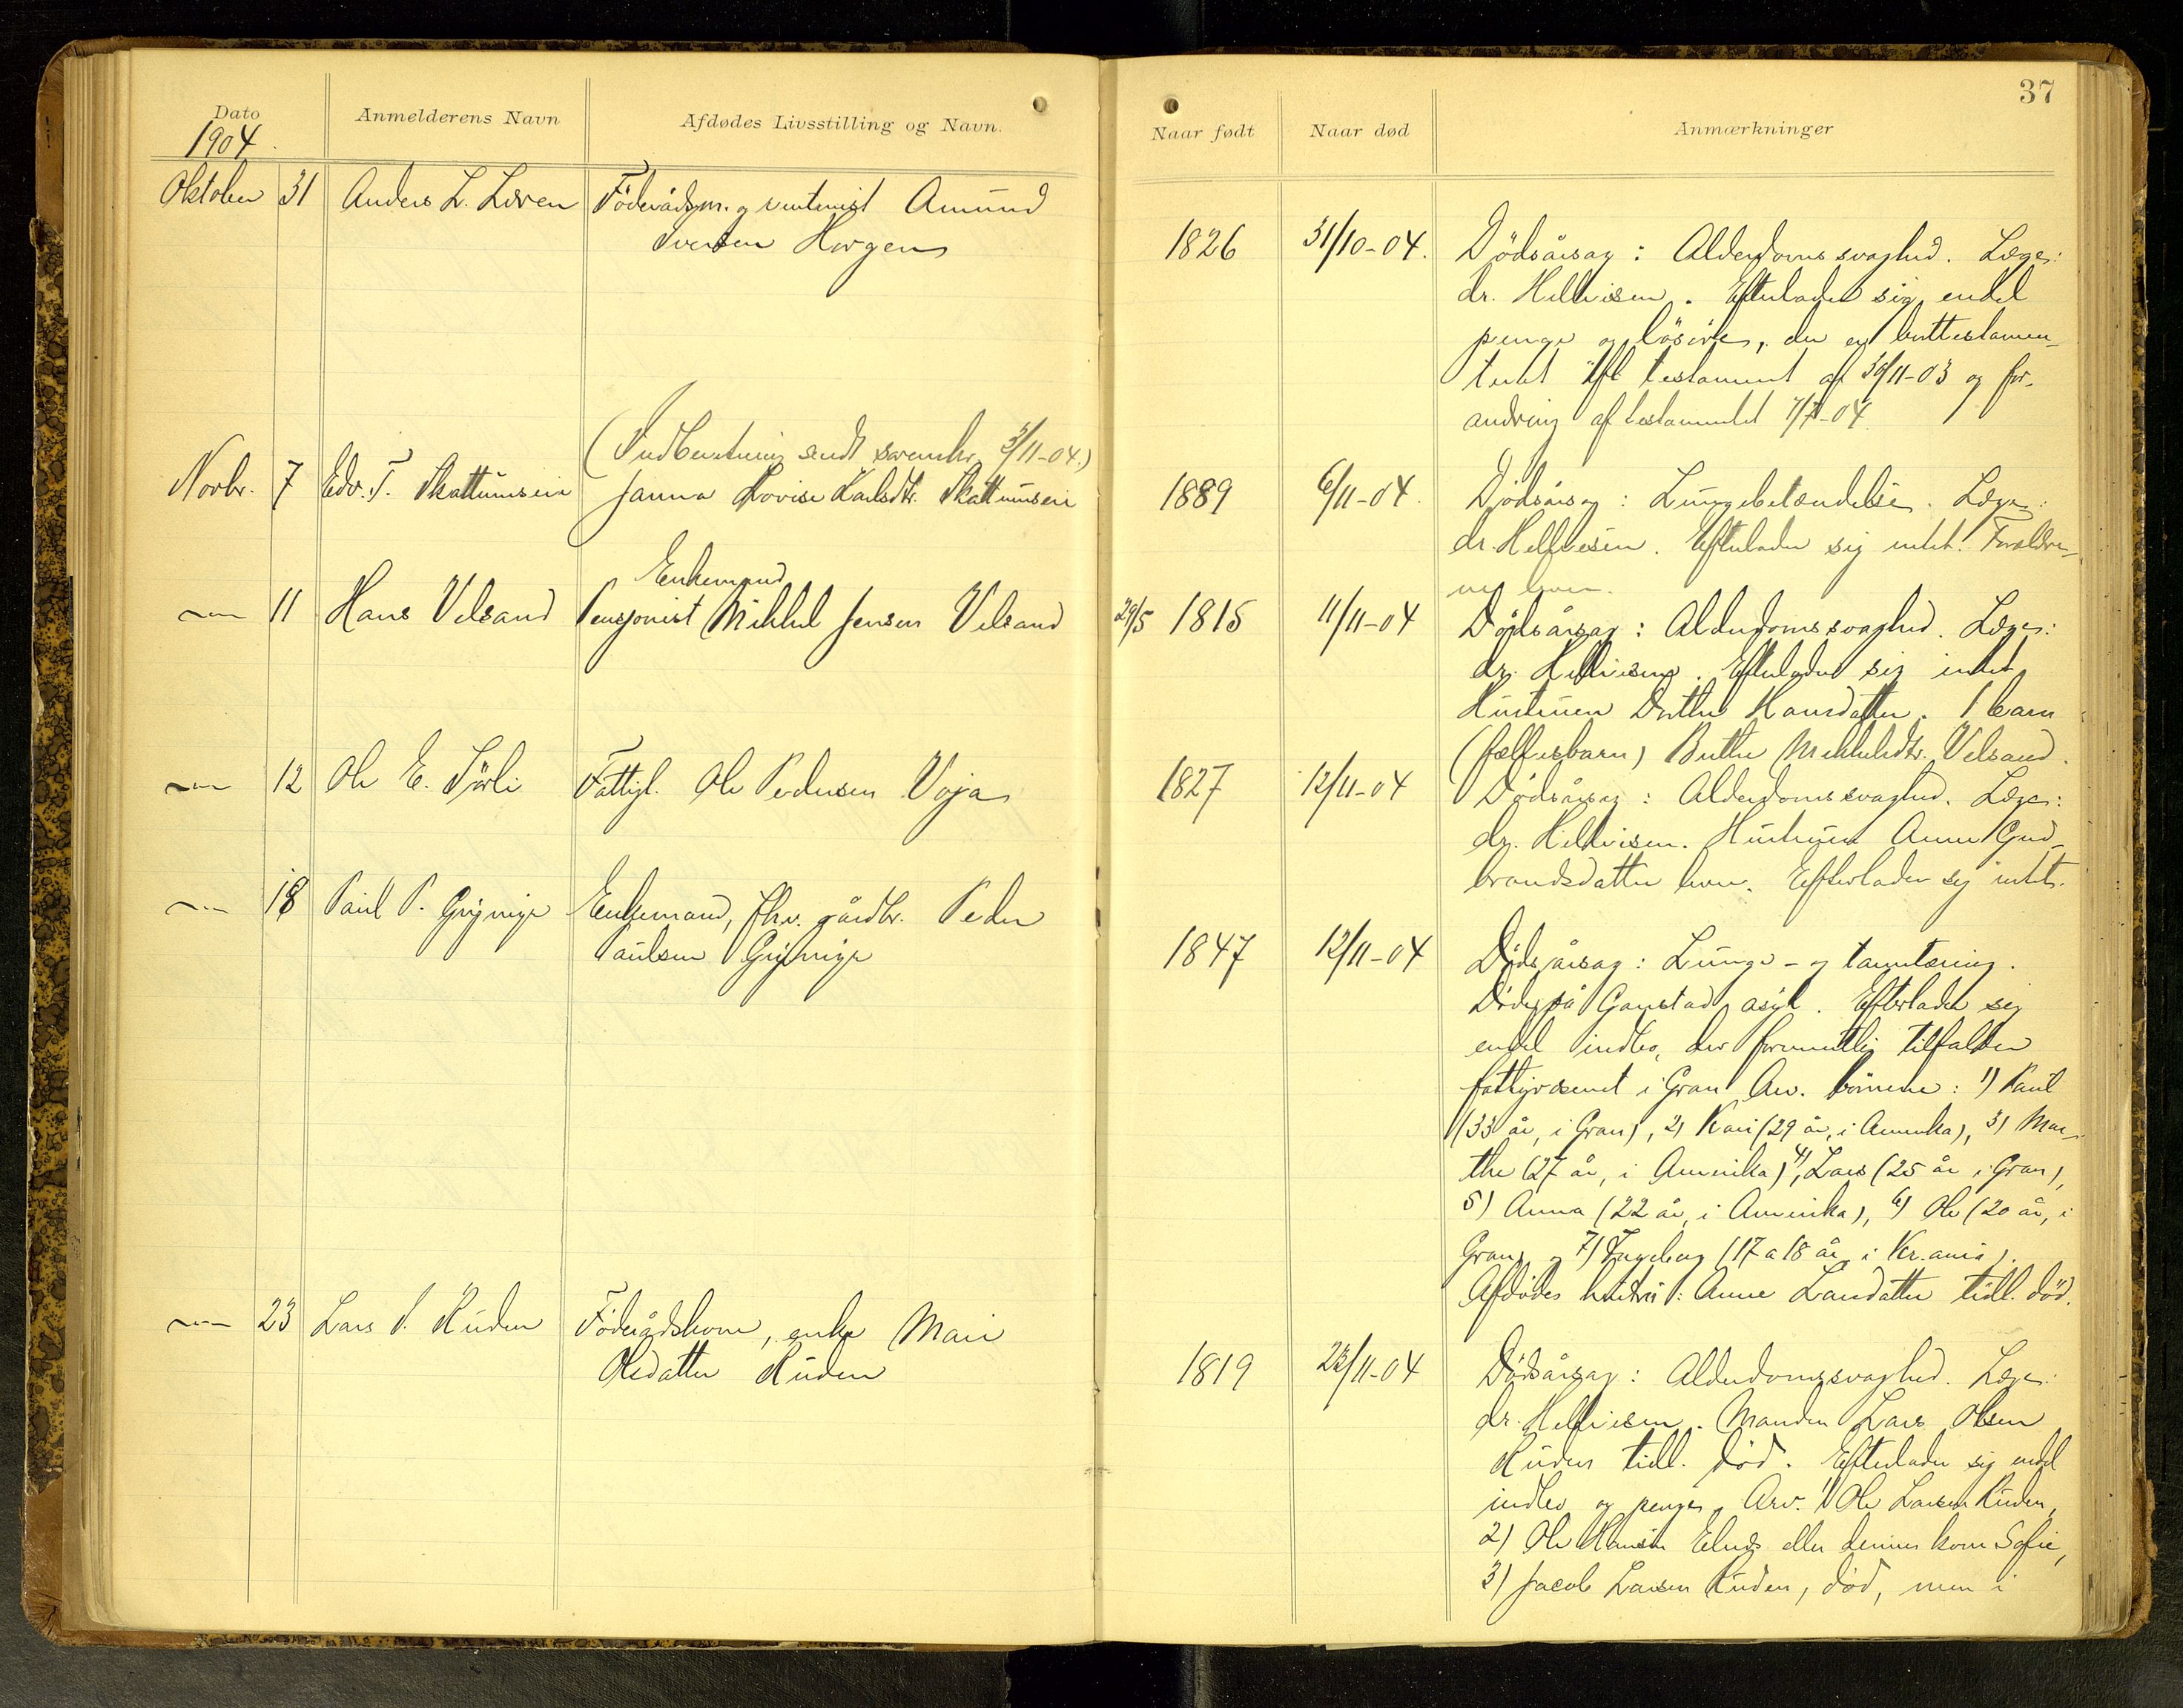 37
Dato
1904
Anmelderens Navn
Afdødes Livsstilling og Navn.
Naar født
Naar død
Anmærkninger
Oktober 31 Anders L. Løren Föderådsm. og rentenist Amund
Iversen Horgen
1826 31/10-04. Dödsårsag: Alderdomssvaghed. Læge:
dr. Hellviesen. Efterlader sig endel
penge og lösöre, der er borttestamen-
teret ifl. testament af 30/11-03 og for-
andring af testamentet 7/7-04
(Indberetning sendt sorenskr. 3/11-04.)
Novbr. 7 Edv. T. Skattumseie Janna Lovise Karlsdtr. Skattumseie
1889 6/11-04. Dödsårsag: Lungebetændelse. Læge:
dr. Hellviesen. Efterlader sig intet. Forældre-
ne lever.
Enkemand
— 11 Hans Velsand Pensjonist Mikkel Jensen Velsand
29/5 1815 11/11-04 Dödsårsag: Alderdomssvaghed. Læge:
dr. Hellviesen. Efterlader sig intet
Hustruen Dorthe Hansdatter. 1 barn
(fællesbarn) Berthe Mikkelsdtr. Velsand.
— 12 Ole E. Sörli Fattigl. Ole Pedersen Voja
1827 12/11-04 Dödsårsag: Alderdomssvaghed. Læge:
dr. Hellviesen. Hustruen Anne Gud-
brandsdatter lever. Efterlader sig intet.
— 18 Paul P. Grymyr Enkemand, fhv. gårdbr. Peder
Paulsen Grymyr
1847 12/11-04 Dödsårsag: Lunge- og tarmtæring.
Döde på Gaustad asyl. Efterlader sig
endel indbo, der formentlig tilfalder
fattigvæsenet i Gran. Arv. börnene: 1) Paul
(33 år, i Gran), 2) Kari (29 år, i Amerika), 3) Mar-
the (27 år, i Amerika), 4) Lars (25 år i Gran),
5) Anna (22 år, i Amerika), 6) Ole (20 år, i
Gran) og 7) Ingeborg (17 a 18 år, i Kr.ania).
Afdödes hustru: Anne Larsdatter tidl. död.
— 23 Lars P. Ruden Föderådskone, enke Mari
Olsdatter Ruden
1819 23/11-04 Dödsårsag: Alderdomssvaghed. Læge:
dr. Hellviesen. Manden Lars Olsen
Ruden tidl. död. Efterlader sig endel
indbo og penge. Arv. 1) Ole Larsen Ruden,
2) Ole Hansen eller dennes kone Sofie,
3) Jacob Larsen Ruden, död, men i